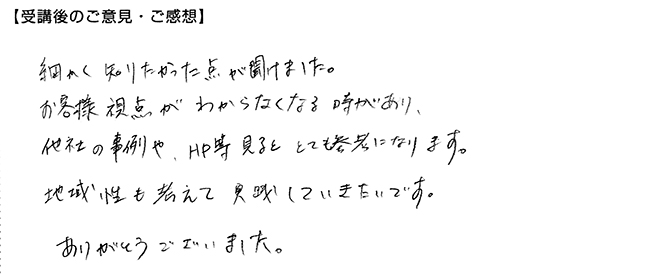 【受講後のご意見・ご感想】
細かく知りたかった点が聞けました。
お客様視点がわからなくなる時があり、
他社の事例や、HP等見るととても参考になります。
地域性も考えて実践していきたいです。
ありがとうございました。